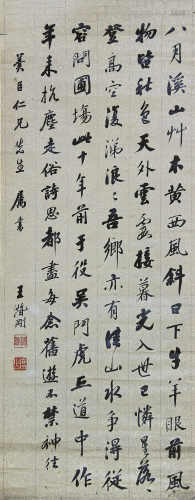 八月溪山艸木黄西風斜日下牛羊眼前風
物皆秋色天外雲無接暮光入世已憐多落
登高空復滿浪浪吾鄉亦有佳山水爭得從
容問圃場此十年前于役吴門虎丘道中作
年来抗塵走俗詩思都盡每念舊遊不禁神往
羹臣仁兄先生屬書
王